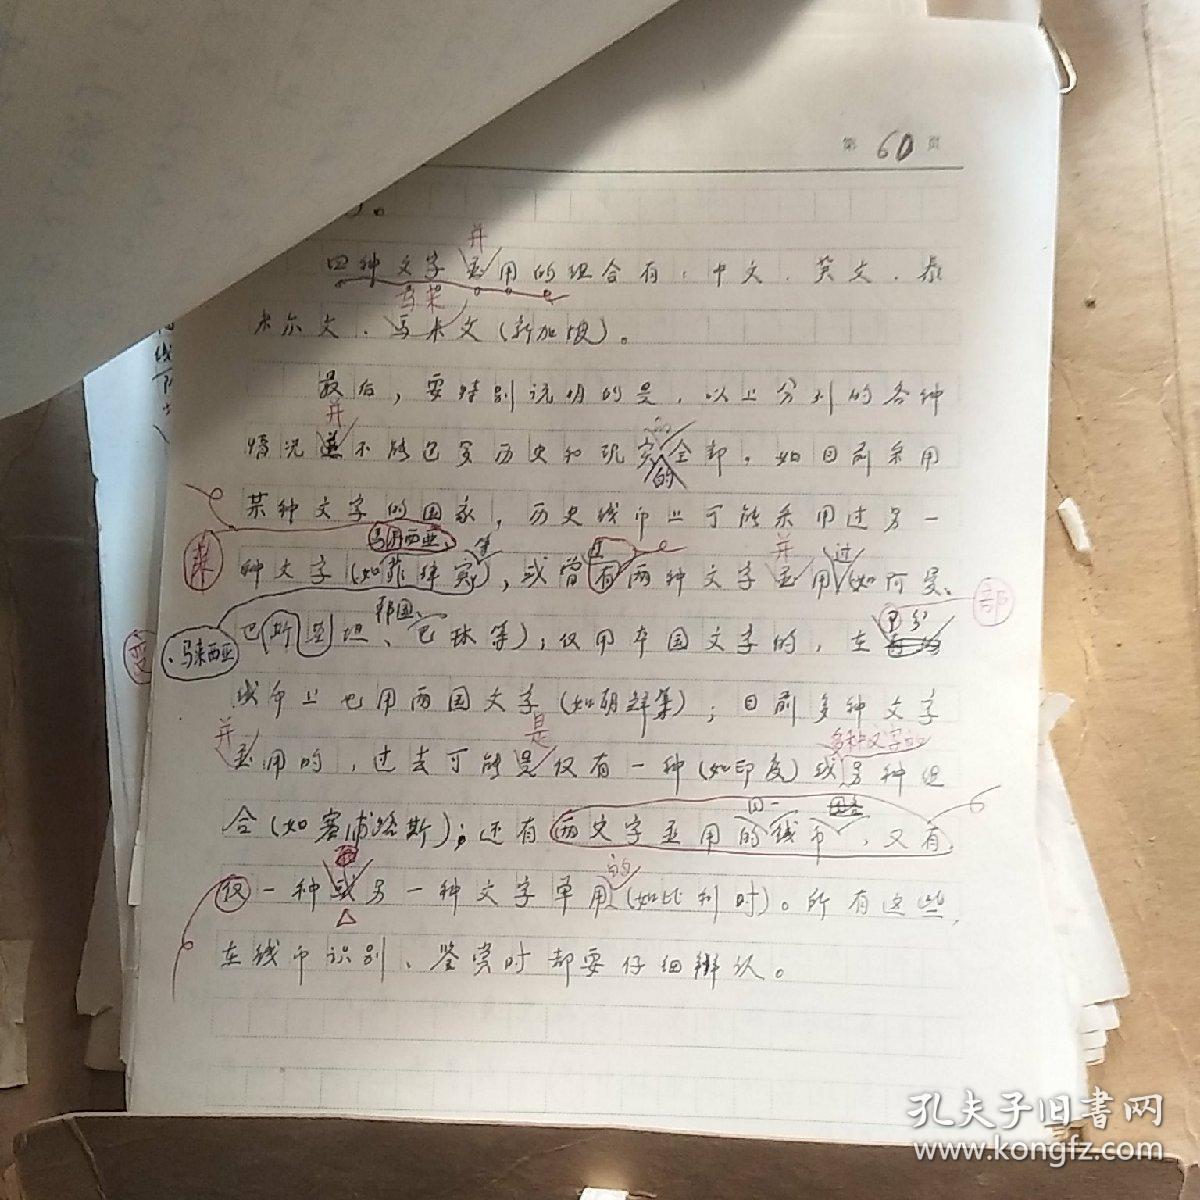 第 60 页
)。
并
四种文字并用的组合有：中文、英文、泰
马来
米尔文、马来文(新加坡)。
最后，要特别说明的是，以上分列的各种
并
情况并不能包罗历史和现实全部。如目前采用
的
某种文字的国家，历史钱币上可能采用过另一
马来西亚、 等
种文字(如菲律宾)，或曾有两种文字并用(如阿曼、
并 过
莱
韩国、
部
巴(斯坦、巴林等)；仅用本国文字的，在
变
、马来西亚
部分
钱币上也用两国文字(如朝鲜等)；目前多种文字
并 是 多种文字的
并用的，过去可能是仅有一种(如印度)或另种组
合(如塞浦路斯)；还有两文字并用的钱币，又有
同一
仅一种或另一种文字单用(如比利时)。所有这些，
的
在钱币识别、鉴赏时都要仔细辨认。
孔夫子旧書网
www.kongfz.com